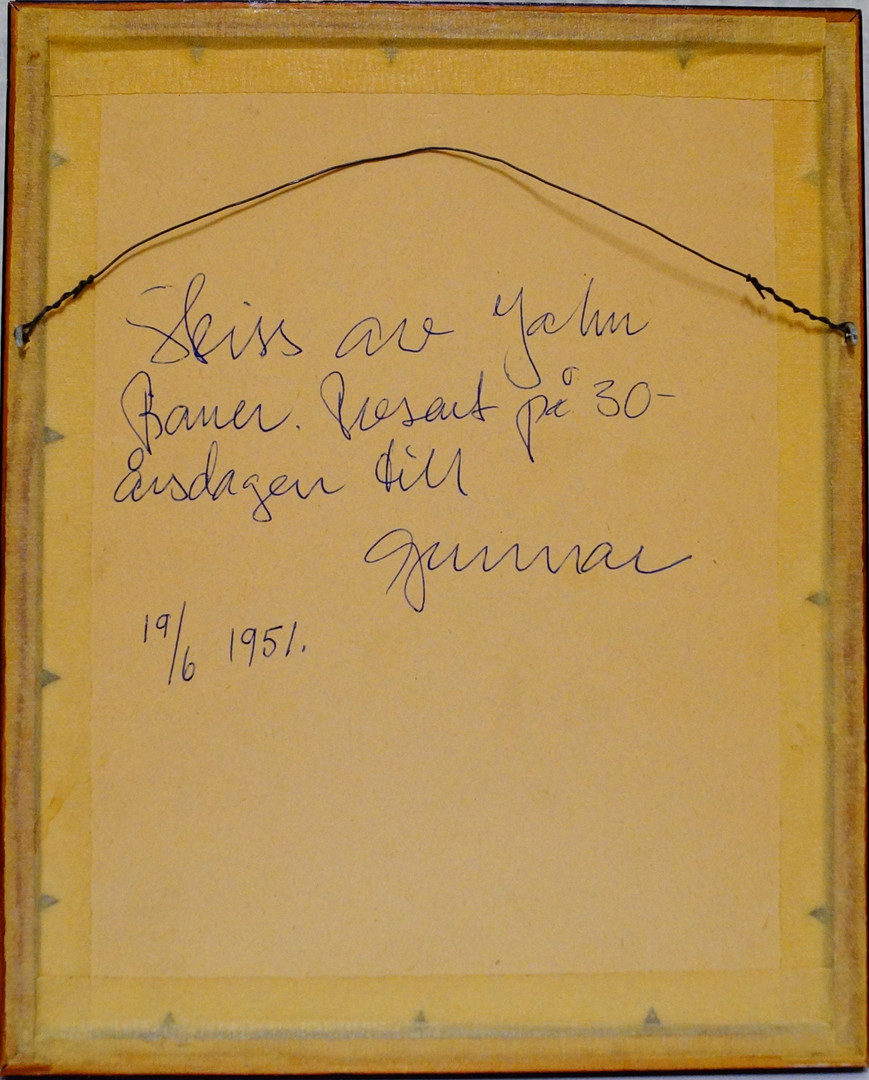 Skiss av John
Bauer. Present på 30-
årsdagen till
Gunnar
19/6 1951.